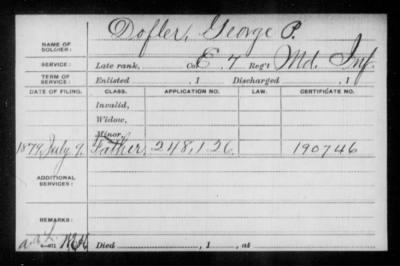 Dofler, George P.
NAME OF SOLDIER:
SERVICE: Late rank, Co. E, 7 Reg't Md. Inf.
TERM OF SERVICE: Enlisted , 1 Discharged , 1
DATE OF FILING. CLASS. APPLICATION NO. LAW. CERTIFICATE NO.
Invalid,
Widow,
Minor,
1879, July 9. Father, 248,126. 190746
ADDITIONAL SERVICES:
REMARKS:
Died , 1 , at